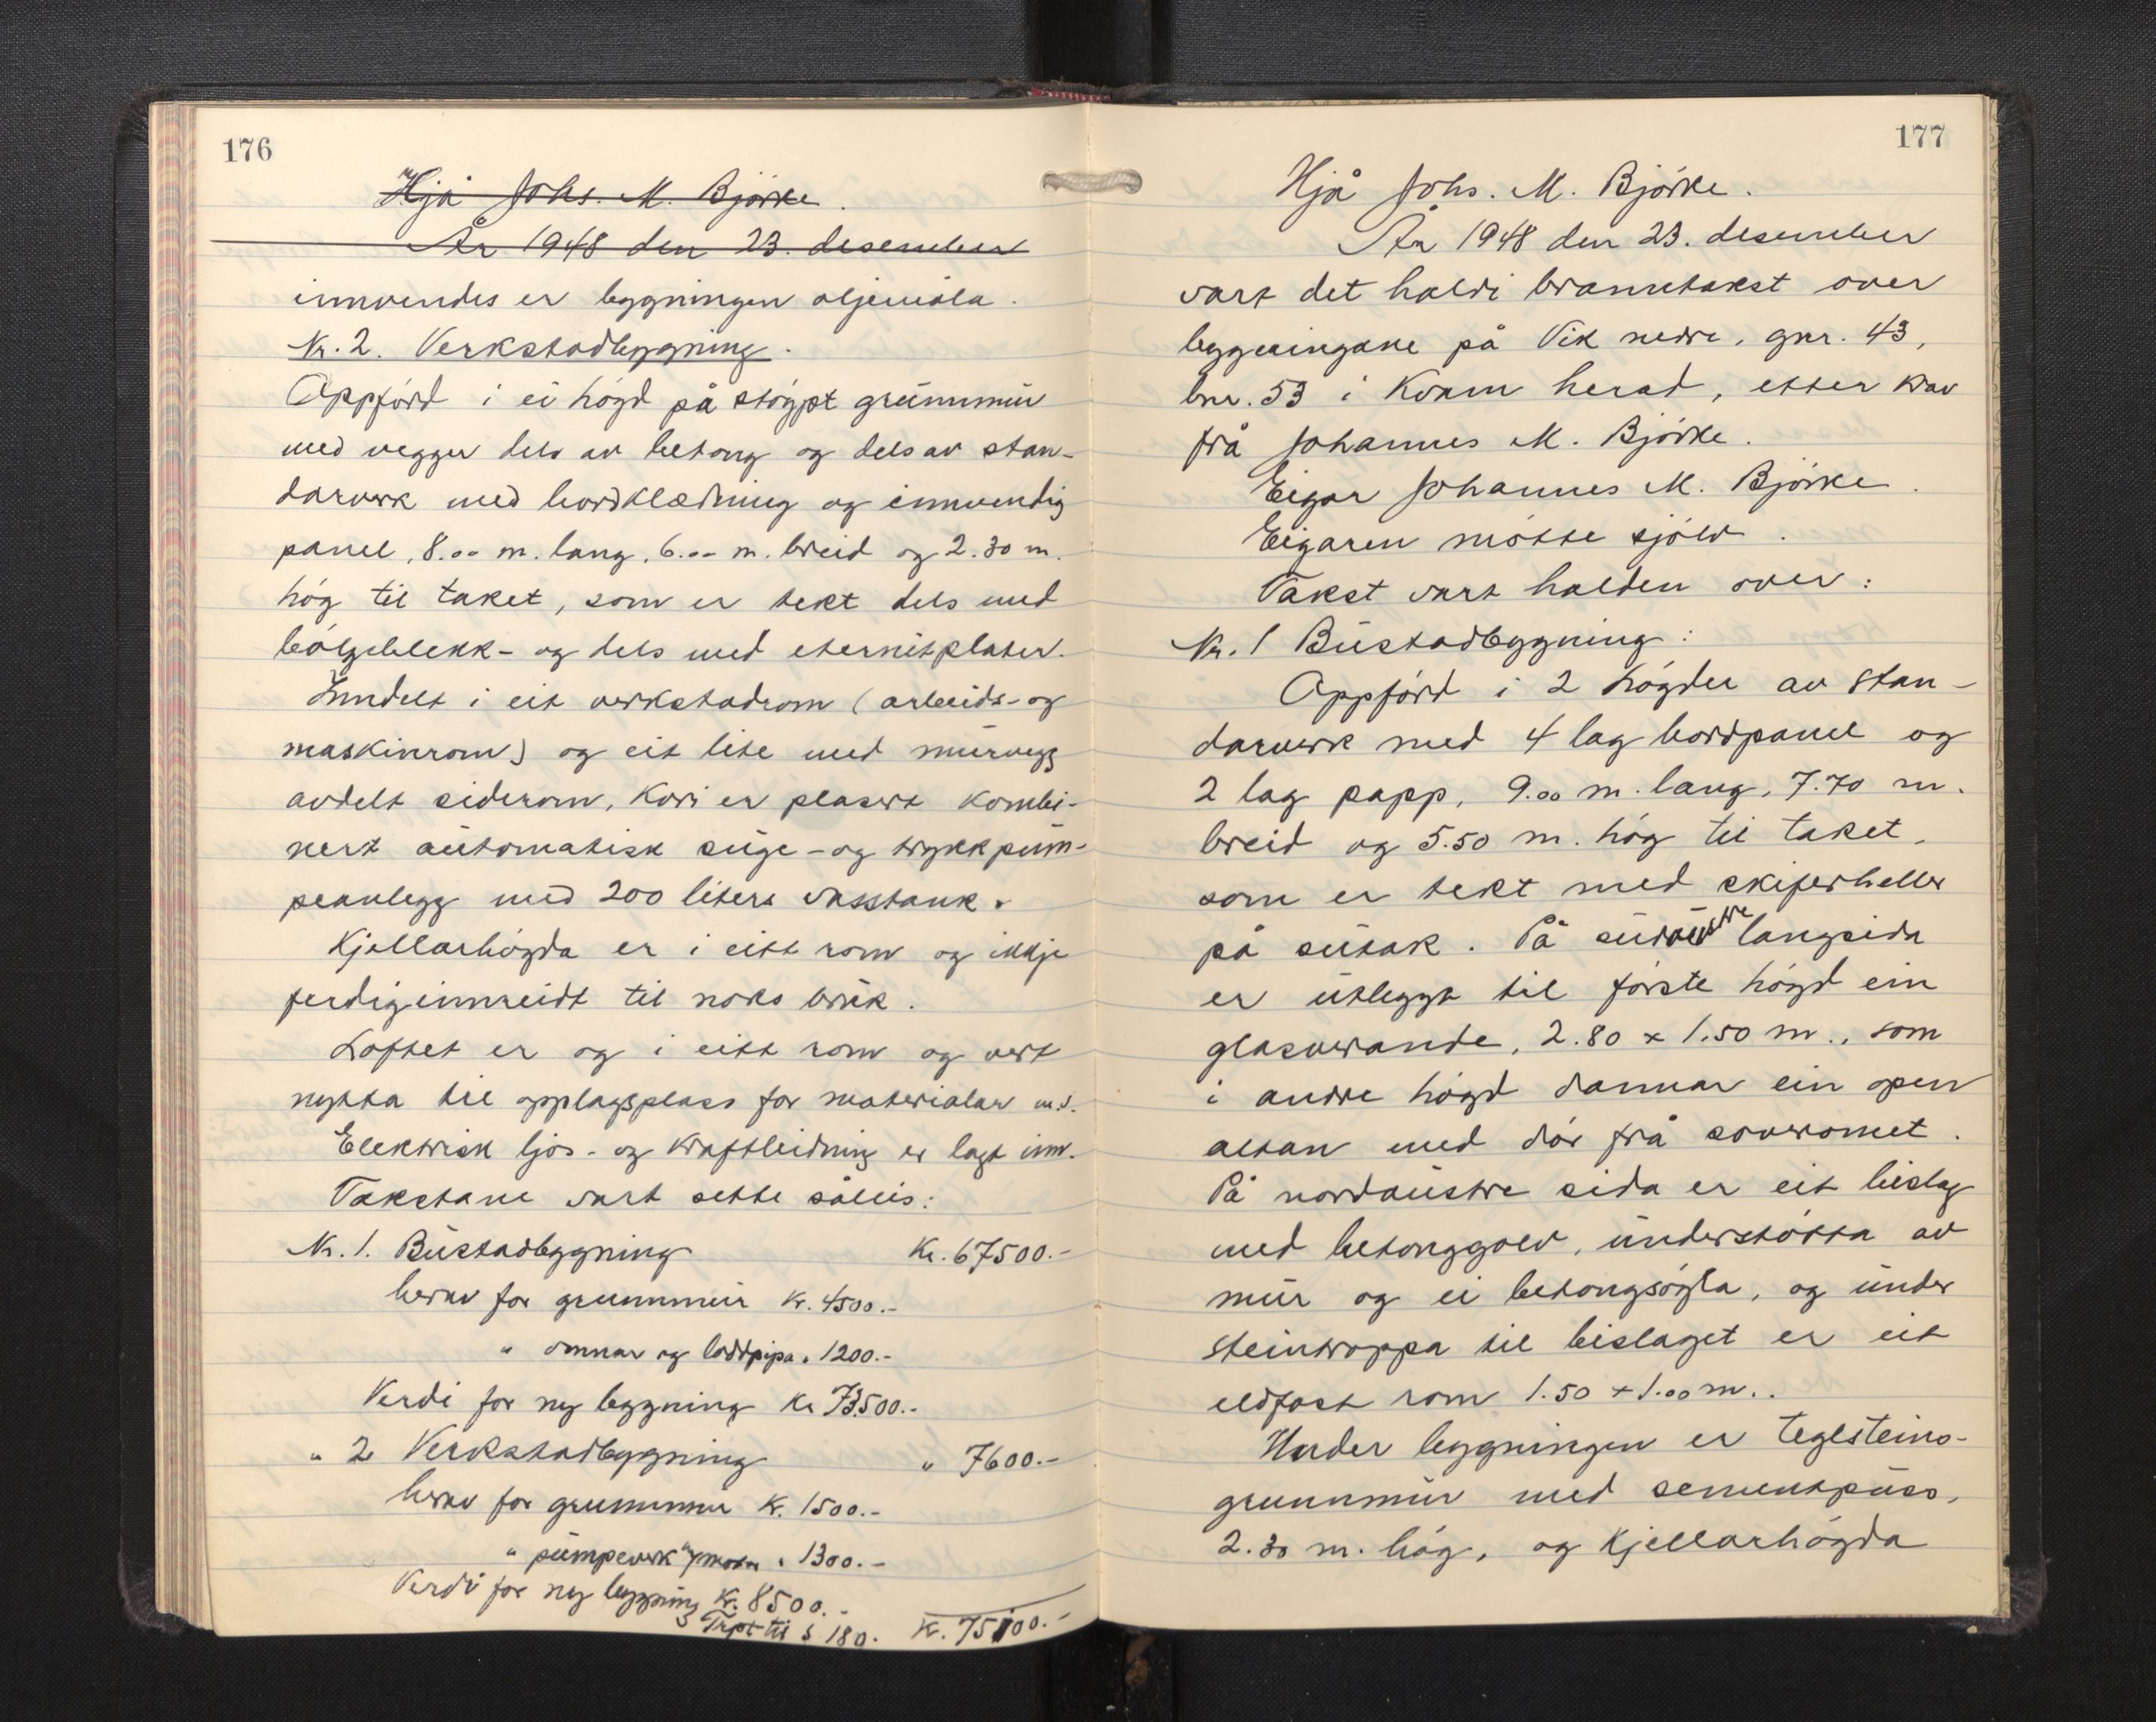 176
Hjå Johs. M. Björke.
År 1948 den 23. desember
innvendes er bygningen oljemåla.
Nr. 2. Verkstadbygning.
Oppförd i ei högd på stöypt grunnmur
med vegger dels av betong og dels av stan-
darverk med bordklædning og innvendig
panel, 8.00 m. lang, 6.00 m. breid og 2.30 m.
hög til taket, som er tekt dels med
bölgeblekk- og dels med eternitplater.
Inndelt i eit verkstadrom (arbeids- og
maskinrom) og eit lite med murvegg
avdelt siderom, kori er plasert kombi-
nert automatisk suge- og trykkpum-
peanlegg med 200 liters vasstank.
Kjellarhögda er i eitt rom og ikkje
ferdiginnreidt til noko bruk.
Loftet er og i eitt rom og vert
nytta til opplagsplass for materialar m.v.
Elektrisk ljos- og kraftleidning er lagt inn.
Takstane vart sette såleis:
Nr. 1. Bustadbygning Kr. 67500.-
herav for grunnmur Kr. 4500.-
" omnar og loddpipa " 1200.-
Verdi for ny bygning Kr 73500.-
" 2 Verkstadbygning " 7600.-
herav for grunnmur Kr. 1500.-
" pumpeverk m/motor " 1300.-
Verdi for ny bygning Kr. 8500.-
Trpt til s 180. Kr. 75100.-
177
Hjå Johs. M. Björke.
År 1948 den 23. desember
vart det haldi branntakst over
bygningane på Vik nedre, gnr. 43,
bnr. 53 i Kvam herad, etter krav
frå Johannes M. Björke.
Eigar Johannes M. Björke.
Eigaren mötte sjölv.
Takst vart halden over:
Nr. 1 Bustadbygning:
Oppförd i 2 högder av stan-
darverk med 4 lag bordpanel og
2 lag papp, 9.00 m. lang, 7.70 m.
breid og 5.50 m. hög til taket,
som er tekt med skiferheller
på sutak. På sudaustre langsida
er utbygt til förste högd ein
glasverande, 2.80 x 1.50 m., som
i andre högd dannar ein open
altan med dör frå soveromet.
På nordaustre sida er eit bislag
med betonggolv, understötta av
mur og ei betongsöyla, og under
steintroppa til bislaget er eit
eldfast rom 1.50 x 1.00 m..
Under bygningen er teglsteins-
grunnmur med sementpuss,
2.30 m. hög, og kjellarhögda